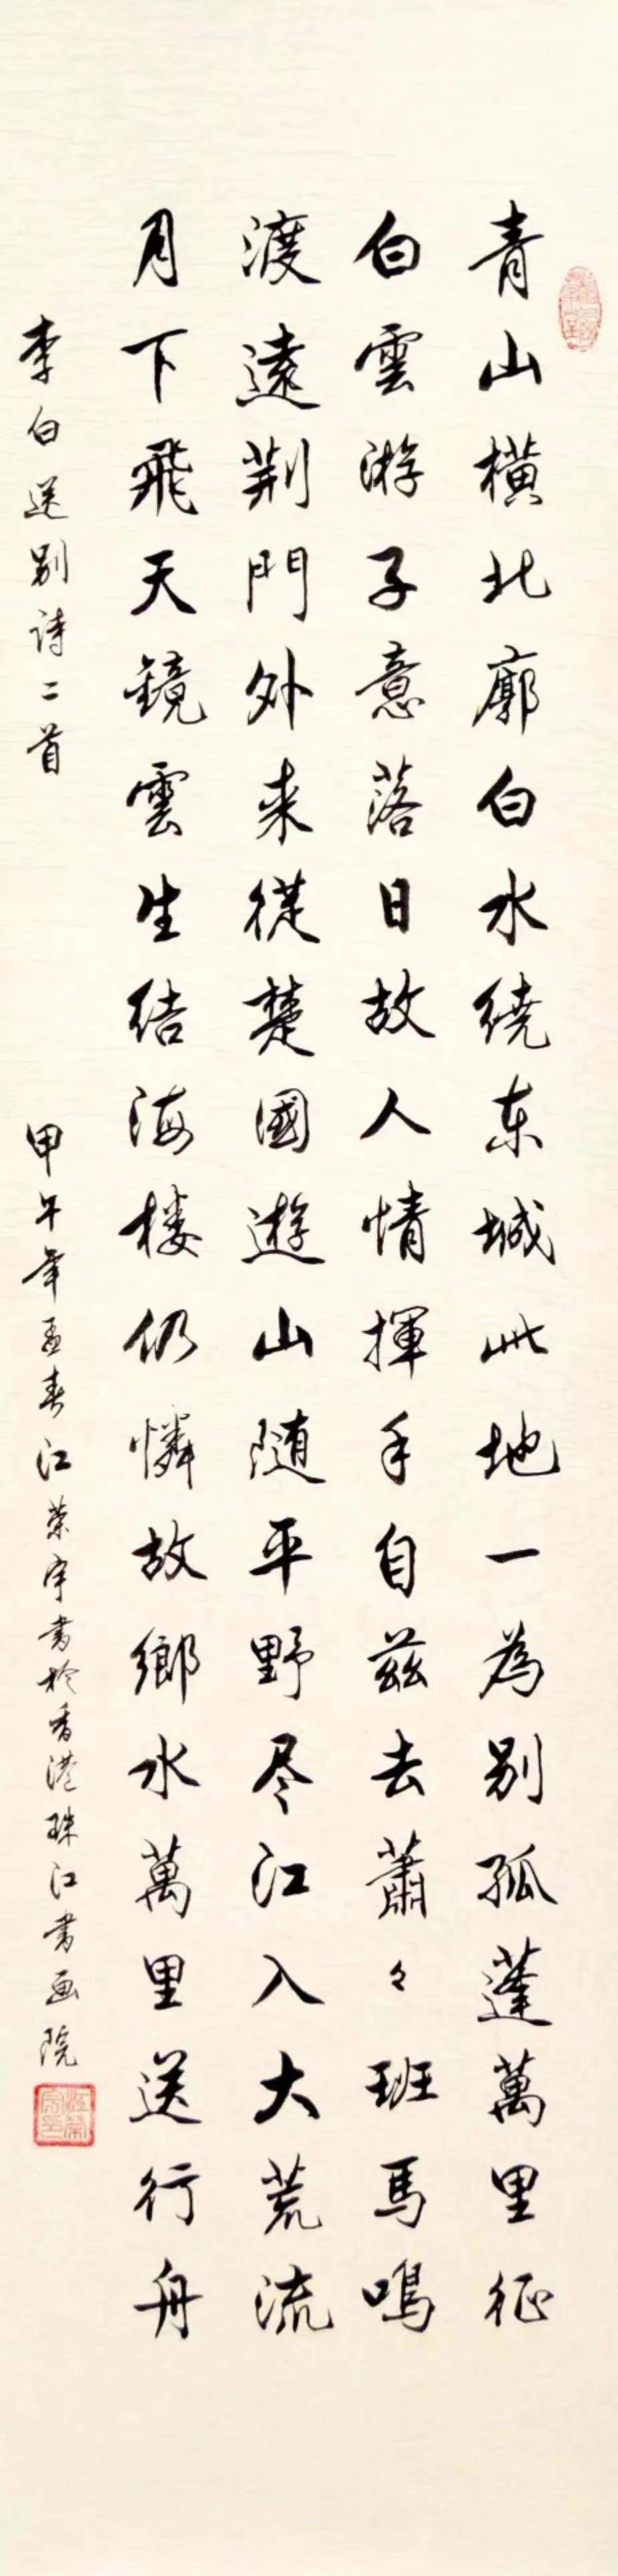 青山橫北廓白水繞东城此地一為别孤蓬萬里征
白雲游子意落日故人情揮手自兹去蕭々班馬鳴
渡遠荆門外来從楚國遊山随平野尽江入大荒流
月下飛天鏡雲生结海楼仍憐故鄉水萬里送行舟
李白送别诗二首
甲午年孟春江荣宇書於香港珠江書画院